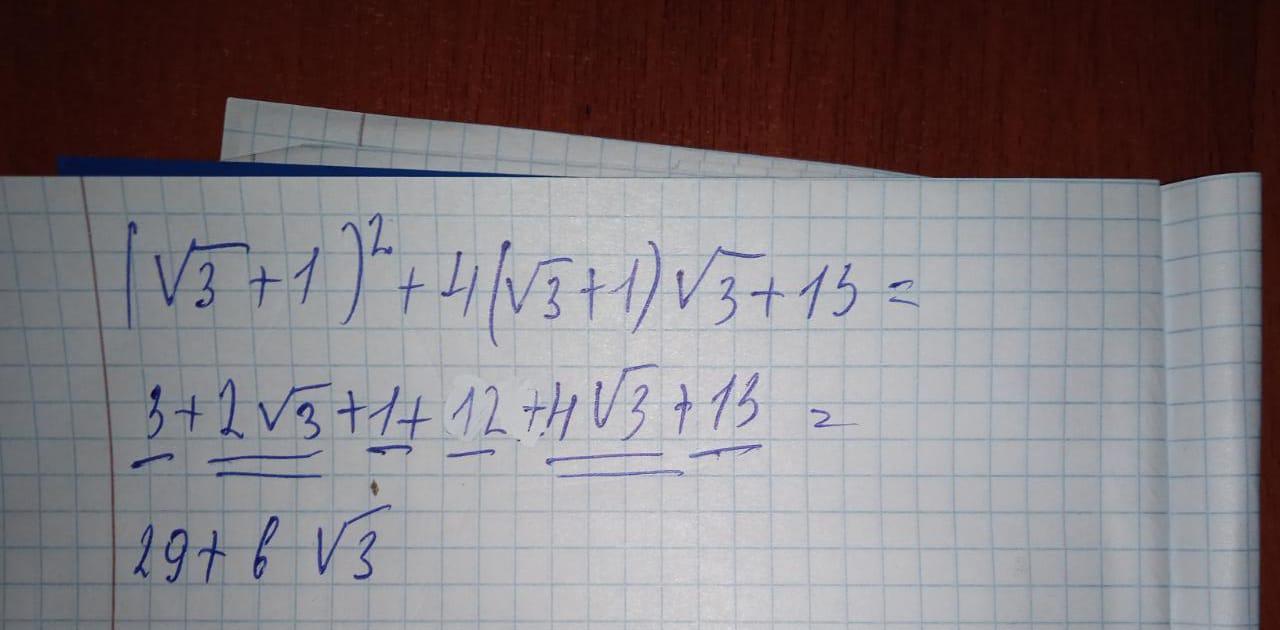 (√3+1)²+4(√3+1)√3+13=
3+2√3+1+12+4√3+13=
29+6√3